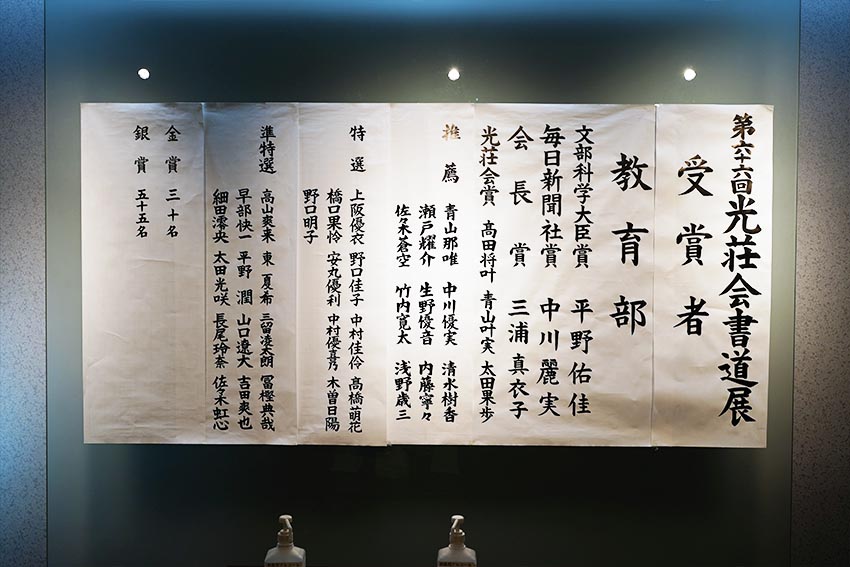 第六十六回光荘会書道展
受賞者
教育部
文部科学大臣賞 平野佑佳
毎日新聞社賞 中川麗実
会長賞 三浦真衣子
光荘会賞 高田将叶 青山叶実 太田果歩
推薦 青山那唯 中川優実 清水樹香
瀬戸耀介 生野優音 内藤寧々
佐々木蒼空 竹内寛太 浅野歳三
特選 上阪優衣 野口佳子 中村佳伶 高橋萌花
橋口果怜 安丸優利 中村優喜乃 木曽日陽
野口明子
準特選 高山爽来 東夏希 三留凌太朗 冨樫典哉
早部快一 平野潤 山口遼大 吉田爽也
細田澪央 太田光咲 長尾玲奈 佐々木虹心
金賞 三十名
銀賞 五十五名